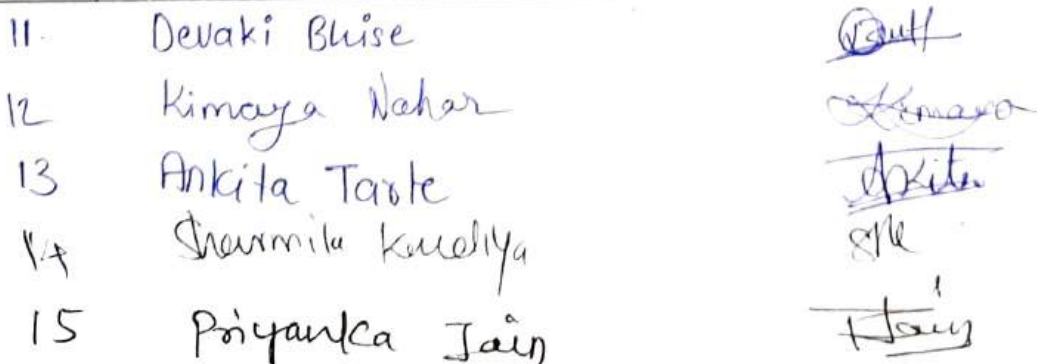 11. Devaki Bhise
12 Kimaya Nahar Kimaya
13 Ankita Tarte Ankita
14 Sharmila
15 Priyanka Jain Jain